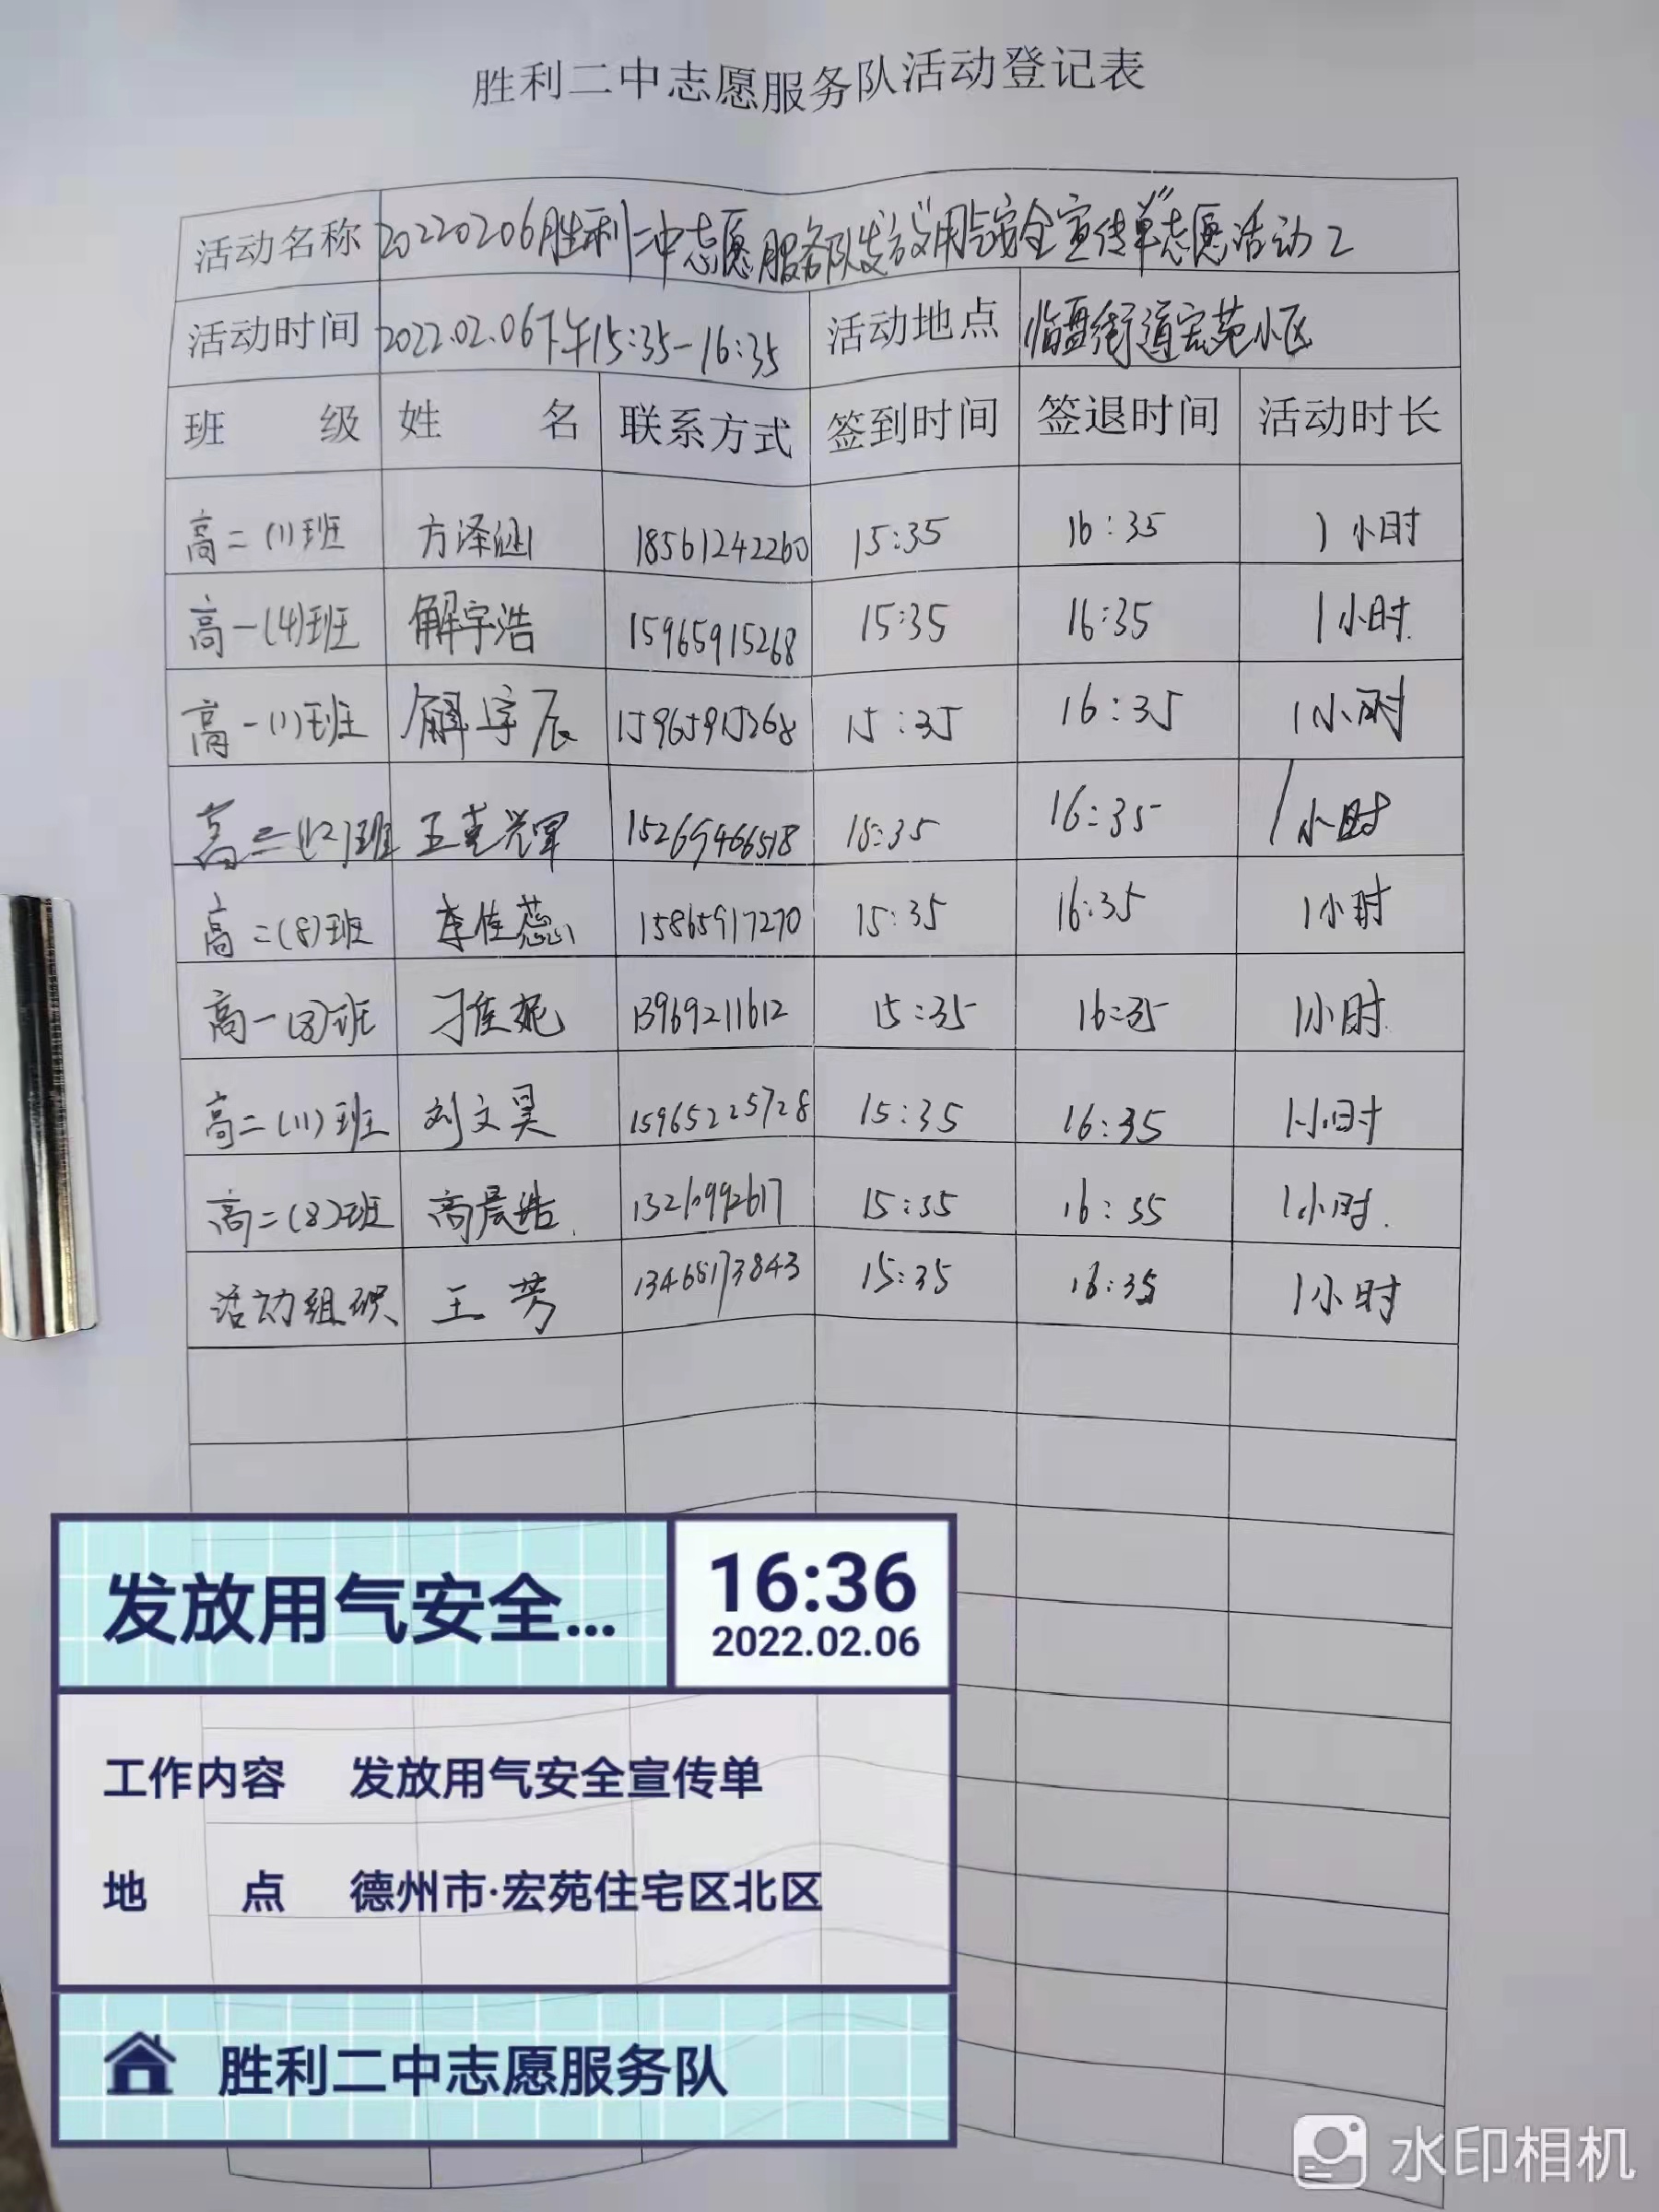 胜利二中志愿服务队活动登记表
活动名称 20220206胜利二中志愿服务队发放"用气安全宣传单"志愿活动2
活动时间 2022.02.06下午15:35-16:35 活动地点 临盘街道宏苑小区
班 级 姓 名 联系方式 签到时间 签退时间 活动时长
高二(1)班 方泽涵 18561242260 15:35 16:35 1小时
高一(4)班 解宇浩 15965915268 15:35 16:35 1小时.
高一(1)班 解宇辰 15965915268 15:35 16:35 1小时
高二(12)班 15269466518 15:35 16:35 1小时
高二(8)班 李佳蕊 15865917270 15:35 16:35 1小时
高一(8)班 13969211612 15:35 16:35 1小时.
高二(11)班 刘文昊 15965225728 15:35 16:35 1小时
高二(8)班 高晨浩. 15:35 16:35 1小时.
活动组织 王芳 13465173843 15:35 16:35 1小时
发放用气安全...
16:36
2022.02.06
工作内容 发放用气安全宣传单
地 点 德州市·宏苑住宅区北区
胜利二中志愿服务队
水印相机